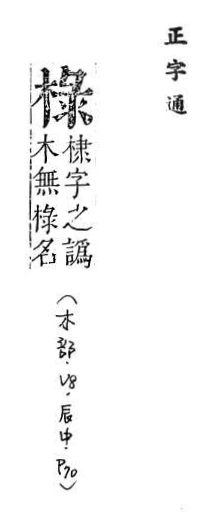 正字通
椂
棣字之譌
木無椂名
（木部．V8．辰中．P70）